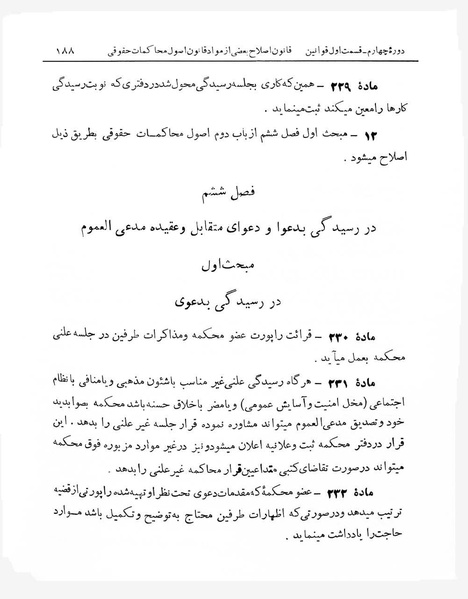 دورهٔ چهارم ـ قسمت اول قوانین قانون اصلاح بعضی از مواد قانون اصول محاکمات حقوقی ۱۸۸
مادهٔ ۲۲۹ ـ همین که کاری بجلسه رسیدگی محول شد در دفتری که نوبت رسیدگی
کارها را معین میکند ثبت مینماید .
۱۲ ـ مبحث اول فصل ششم از باب دوم اصول محاکمات حقوقی بطریق ذیل
اصلاح میشود .
فصل ششم
در رسیدگی بدعوا و دعوای متقابل وعقیده مدعی العموم
مبحث اول
در رسیدگی بدعوی
مادهٔ ۲۳۰ ـ قرائت راپورت عضو محکمه ومذاکرات طرفین در جلسه علنی
محکمه بعمل میآید .
مادهٔ ۲۳۱ ـ هرگاه رسیدگی علنی غیر مناسب باشئون مذهبی ویامنافی بانظام
اجتماعی (مخل امنیت وآسایش عمومی) ویامضر باخلاق حسنه باشد محکمه بصوابدید
خود وتصدیق مدعی العموم میتواند مشاوره نموده قرار جلسه غیر علنی را بدهد . این
قرار در دفتر محکمه ثبت وعلانیه اعلان میشود ونیز در غیر موارد مزبوره فوق محکمه
میتواند در صورت تقاضای کتبی متداعیین قرار محاکمه غیر علنی را بدهد .
مادهٔ ۲۳۲ ـ عضو محکمهٔ که مقدمات دعوی تحت نظر او تهیه شده راپورتی از قضیه
ترتیب میدهد ودر صورتی که اظهارات طرفین محتاج به توضیح و تکمیل باشد مـوارد
حاجت را یادداشت مینماید .